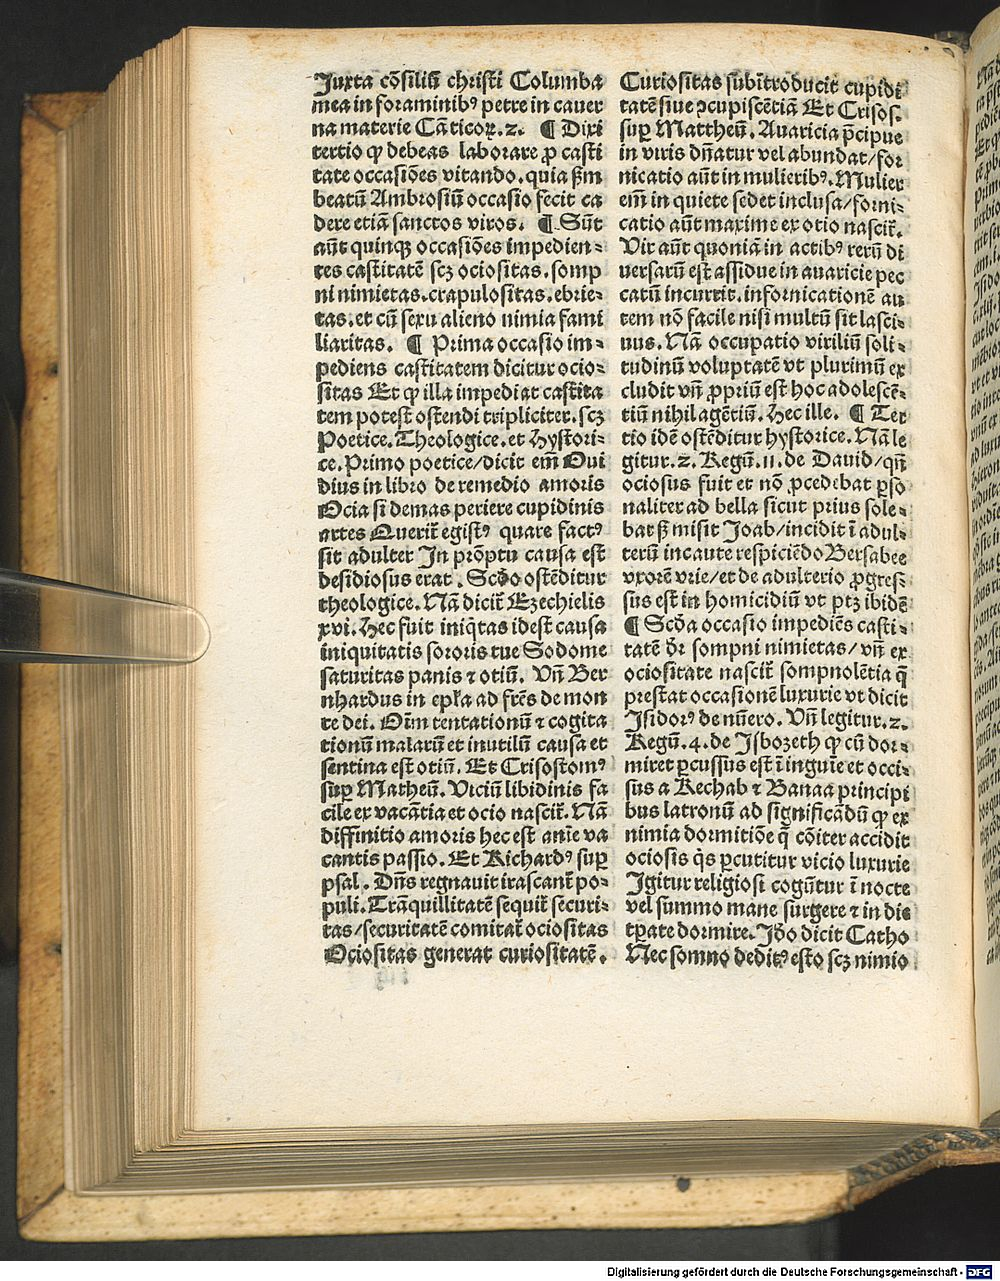 Juxta cõsiliũ christi Columba
mea in foraminibꝰ petre in cauer
na materie Cãticoꝝ.2. ¶ Dixi
tertio ꝙ debeas laborare ꝓ casti
tate occasiões vitando.quia ẜm
beatũ Ambrosiũ occasio fecit ca
dere etiã sanctos viros. ¶ Sũt
aũt quinqꝫ occasiões impedien⸗
tes castitatẽ scꝫ ociositas.somp
ni nimietas.crapulositas.ebrie⸗
tas.et cũ sexu alieno nimia fami
liaritas. ¶ Prima occasio im⸗
pediens castitatem dicitur ocio⸗
sitas Et ꝙ illa impediat castita
tem potest ostendi tripliciter.scꝫ
Poetice.Theologice.et hystori⸗
ce.Primo poetice/dicit em̃ Oui
dius in libro de remedio amoris
Ocia si demas periere cupidinis
artes Querit̃ egistꝰ quare factꝰ
sit adulter In prõptu causa est
desidiosus erat. Scđo ostẽditur
theologice.Nã dicit̃ Ezechielis
xvi.Hec fuit iniq̃tas idest causa
iniquitatis sororis tue Sodome
saturitas panis ⁊ otiũ. Vñ Ber
nhardus in ep̃ła ad frẽs de mon
te dei. Oĩm tentationũ ⁊ cogita
tionũ malarũ et inutiliũ causa et
sentina est otiũ. Et Crisostomꝰ
suꝑ Matheũ. Viciũ libidinis fa
cile ex vacãtia et ocio nascit̃. Nã
diffinitio amoris hec est anĩe va
cantis passio. Et Richardꝰ suꝑ
psal. Dñs regnauit irascant̃ po⸗
puli.Trãquillitatẽ sequit̃ securi⸗
tas/securitatẽ comitat̃ ociositas
Ociositas generat curiositatẽ.
Curiositas subĩtroducit cupidi
tatẽ siue ꝯcupiscẽtiã Et Crisos.
suꝑ Mattheũ. Avaricia p̃cipue
in viris dñatur vel abundat/for
nicatio aũt in mulieribꝰ. Mulier
em̃ in quiete sedet inclusa/forni⸗
catio aũt maxime ex otio nascit̃.
Vir aũt quoniã in actibꝰ rerũ di
uersarũ est assidue in auaricie pec
catũ incurrit.in fornicationẽ au
tem nõ facile nisi multũ sit lasci⸗
uus. Nã occupatio viriliũ soli⸗
tudinũ voluptatẽ vt plurimũ ex
cludit vñ ꝓpriũ est hoc adolescẽ⸗
tiũ nihil agẽtiũ. Hec ille. ¶ Ter
tio idẽ ostẽditur hystorice. Nã le
gitur.2. Regũ.11. de Dauid/qñ
ociosus fuit et nõ ꝓcedebat ꝑso
naliter ad bella sicut prius sole⸗
bat ẜ misit Joab/incidit ĩ adul⸗
teriũ incaute respiciẽdo Bersabee
vxorẽ vrie/et de adulterio ꝓgres⸗
sus est in homicidiũ vt ptꝫ ibidẽ
¶ Scđa occasio impediẽs casti⸗
tatẽ dr̃ sompni nimietas/ vñ ex
ociositate nascit̃ sompnolẽtia q̃
prestat occasionẽ luxurie vt dicit
Isidorꝰ de nũero. Vñ legitur.2.
Regũ.4.de Isbozeth ꝙ cũ dor⸗
miret ꝑcussus est ĩ inguĩe et occi⸗
sus a Rechab ⁊ Banaa principi
bus latronũ ad significãdũ ꝙ ex
nimia dormitiõe q̃ cõiter accidit
ociosis q̃s ꝑcutitur vicio luxurie
Igitur religiosi cogũtur ĩ nocte
vel summo mane surgere ⁊ in die
tꝑate dormire. Iđo dicit Catho
Nec somno deditꝰ esto scꝫ nimio
Digitalisierung gefördert durch die Deutsche Forschungsgemeinschaft - DFG